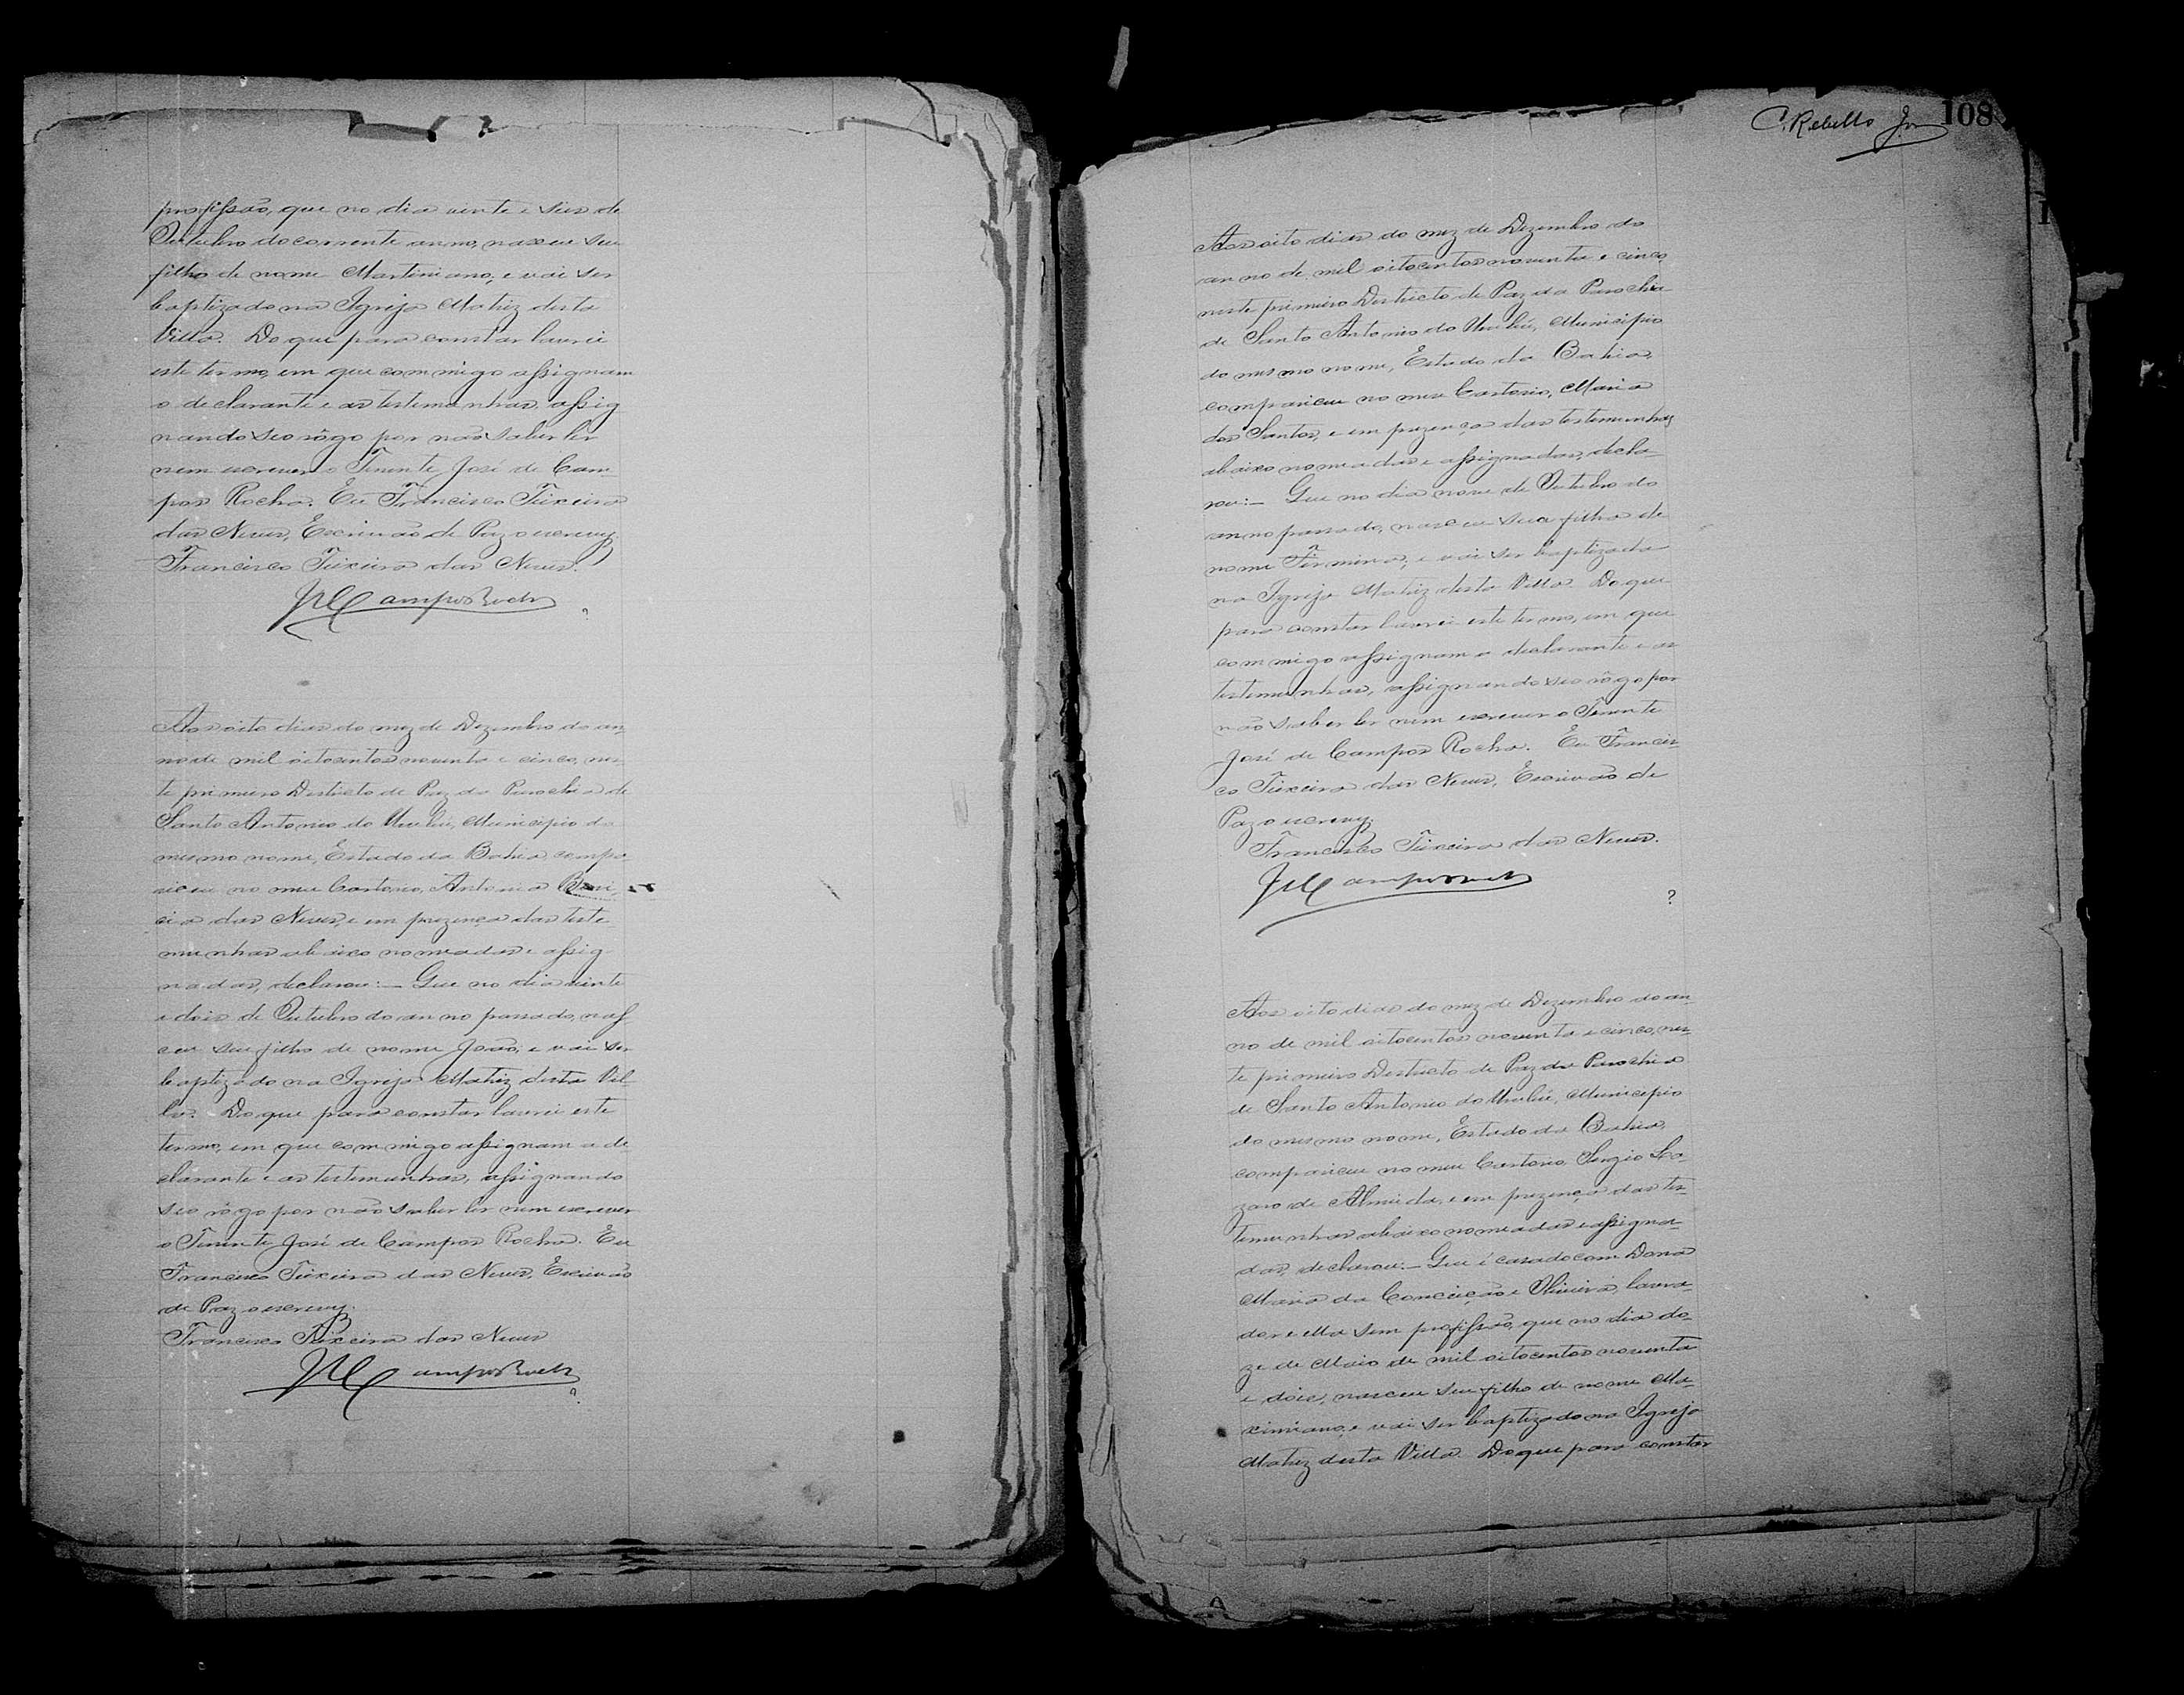 profissão, que no dia vinte e seis de
Outubro do corrente anno, nasceu seu
filho de nome Martiniano, e vai ser
baptizado na Igreja Matriz desta
Villa. Do que para constar lavrei
este termo, em que commigo assignam
o declarante e as testemunhas, assig
nando seo rôgo por não saber ler
nem escrever o Tenente José de Cam-
pos Rocha. Eu Francisco Teixeira
das Neves, Escrivão de Paz o escrevy.
Francisco Teixeira das Neves.
JCamposRocha
Aos oito dias do mez de Dezembro do an
no de mil oitocentos noventa e cinco, nes
te primeiro Destricto de Paz da Parochia de
Santo Antonio do Urubú, Municipio do
mesmo nome, Estado da Bahia, compa
receu no meu Cartorio, Antonia
cia das Neves, e em prezença das teste
munhas abaixo nomeadas e assig
nadas, declarou:— Que no dia vinte
e dois de Outubro do anno passado, nas
ceu seu filho de nome João, e vai ser
baptizado na Igreja Matriz desta Vil-
la. Do que para constar lavrei este
termo, em que commigo assignam a de
clarante e as testemunhas, assignando
seo rôgo por não saber ler nem escrever
o Tenente José de Campos Rocha. Eu
Francisco Teixeira das Neves, Escrivão
de Paz o escrevy.
Francisco Teixeira das Neves
JCamposRocha
C. Rebello Jor 108
Aos oito dias do mez de Dezembro do
anno de mil oitocentos noventa e cinco,
neste primeiro Destricto de Paz da Parochia
de Santo Antonio do Urubú, Municipio
do mesmo nome, Estado da Bahia,
compareceu no meu Cartorio, Maria
dos Santos, e em prezença das testemunhas
abaixo nomeadas e assignadas, decla-
rou:— Que no dia nove de Outubro do
anno passado, nasceu sua filha de
nome Firmina, e vai ser baptizada
na Igreja Matriz desta Villa. Do que
para constar lavrei este termo, em que
commigo assignam a declarante e as
testemunhas, assignando seo rôgo por
não saber ler nem escrever o Tenente
José de Campos Rocha. Eu Francis-
co Teixeira das Neves, Escrivão de
Paz o escrevy.
Francisco Teixeira das Neves.
JCamposRocha
Aos oito dias do mez de Dezembro do an-
no de mil oitocentos noventa e cinco, nes-
te primeiro Destricto de Paz da Parochia
de Santo Antonio do Urubú, Municipio
do mesmo nome, Estado da Bahia,
compareceu no meu Cartorio Sergio La-
zaro de Almeida, e em prezença das tes-
temunhas abaixo nomeadas e assigna-
das, declarou:— Que é casado com Dona
Maria da Conceição e Oliveira, lavra-
dor e ella sem profissão, que no dia do-
ze de Maio de mil oitocentos noventa
e dois, nasceu seu filho de nome Ma-
ximiano, e vai ser baptizado na Igreja
Matriz desta Villa. Do que para constar